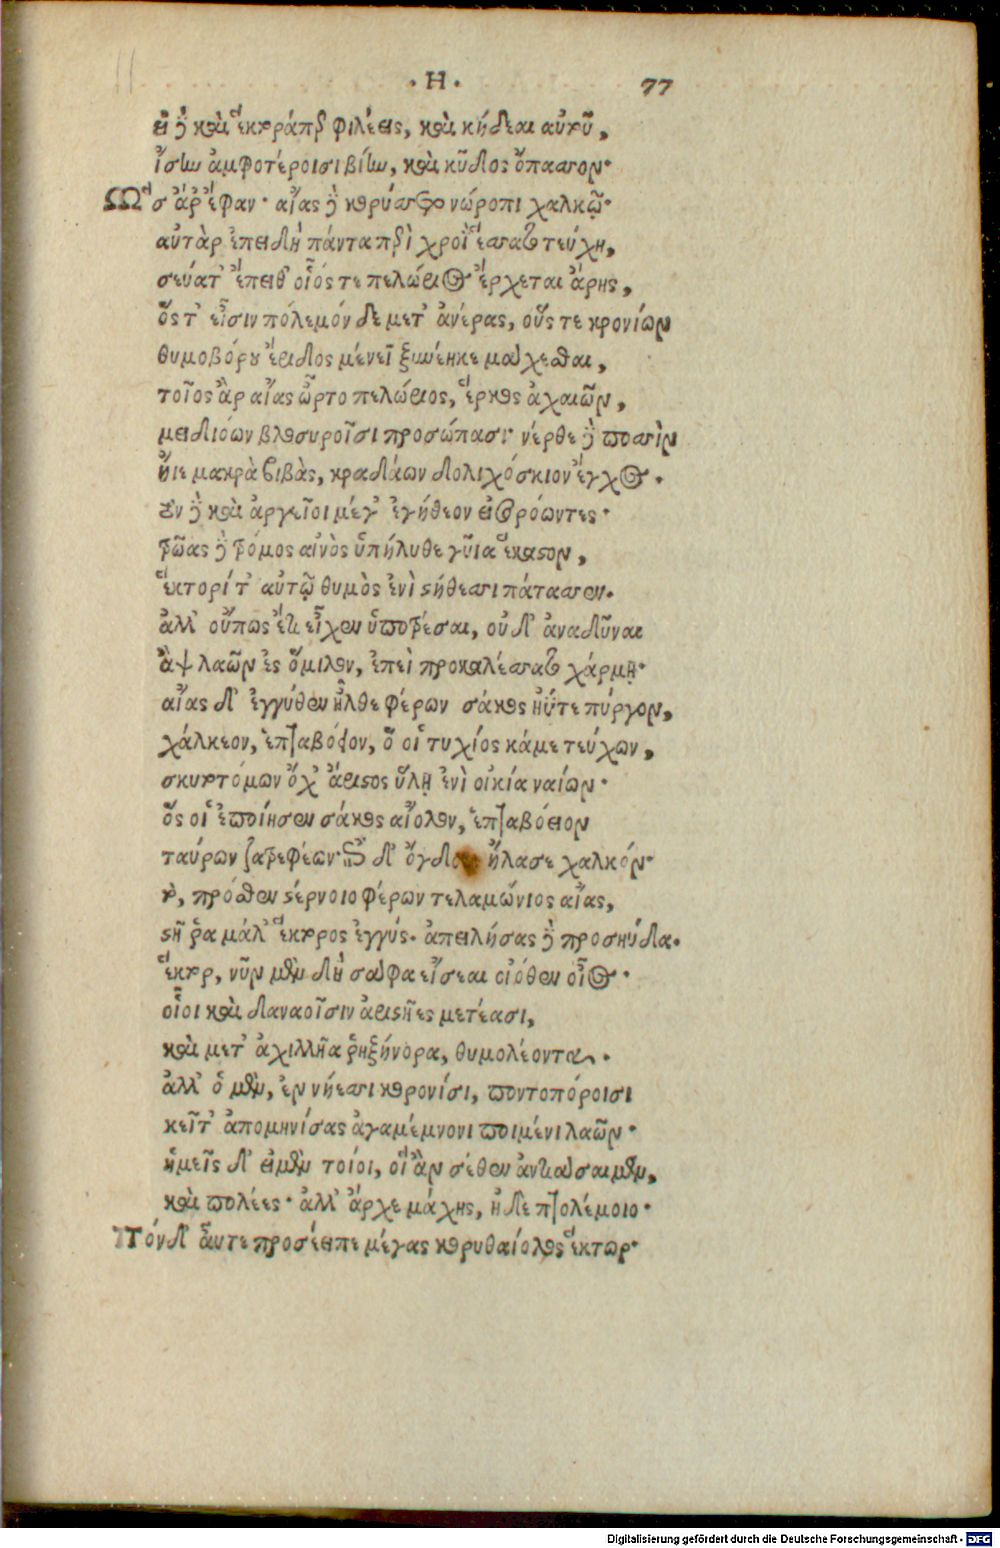 · Η · 77
εἰ δὲ καὶ ἕκτορά περ φιλέεις, καὶ κήδεαι αὐτοῦ,
ἴσην ἀμφοτέροισι βίην, καὶ κῦδος ὄπασσον·
Ὣς ἄρ' ἔφαν· αἴας δὲ κορύσσετο νώροπι χαλκῷ·
αὐτὰρ ἐπειδὴ πάντα περὶ χροῒ ἕσσατο τεύχη,
σεύατ' ἔπειθ' οἷός τε πελώριος ἔρχεται ἄρης,
ὅς τ' εἶσιν πόλεμόν δε μετ' ἀνέρας, οὕς τε κρονίων
θυμοβόρου ἔριδος μένεϊ ξυνέηκε μάχεσθαι,
τοῖος ἂρ αἴας ὦρτο πελώριος, ἕρκος ἀχαιῶν,
μειδιόων βλοσυροῖσι προσώπασι· νέρθε δὲ ποσσὶν
ἤιε μακρὰ βιβὰς, κραδάων δολιχόσκιον ἔγχος.
τὸν δὲ καὶ ἀργεῖοι μέγ' ἐγήθεον εἰσορόωντες·
τρῶας δὲ τρόμος αἰνὸς ὑπήλυθε γυῖα ἕκαστον,
ἕκτορί τ' αὐτῷ θυμὸς ἐνὶ στήθεσσι πάτασσεν.
ἀλλ' οὔπως ἔτι εἶχεν ὑποτρέσαι, οὐδ' ἀναδῦναι
ἂψ λαῶν ἐς ὅμιλον, ἐπεὶ προκαλέσσατο χάρμῃ·
αἴας δ' ἐγγύθεν ἦλθε φέρων σάκος ἠΰτε πύργον,
χάλκεον, ἑπταβόειον, ὅ οἱ τυχίος κάμε τεύχων,
σκυτοτόμων ὄχ' ἄριστος ὕλῃ ἐνὶ οἰκία ναίων·
ὅς οἱ ἐποίησεν σάκος αἴολον, ἑπταβόειον
ταύρων ζατρεφέων· ἐπὶ δ' ὄγδοον ἤλασε χαλκόν·
τὸ, πρόσθεν στέρνοιο φέρων τελαμώνιος αἴας,
στῆ ῥα μάλ' ἕκτορος ἐγγύς. ἀπειλήσας δὲ προσηύδα.
ἕκτορ, νῦν μὲν δὴ σάφα εἴσεαι οἰόθεν οἶος·
οἷοι καὶ δαναοῖσιν ἀριστῆες μετέασι,
καὶ μετ' ἀχιλλῆα ῥηξήνορα, θυμολέοντα.
ἀλλ' ὁ μὲν, ἐν νήεσσι κορονίσι, ποντοπόροισι
κεῖτ' ἀπομηνίσας ἀγαμέμνονι ποιμένι λαῶν·
ἡμεῖς δ' εἰμὲν τοίοι, οἳ ἂν σέθεν ἀντιάσαιμεν,
καὶ πολέες· ἀλλ' ἄρχε μάχης, ἠδὲ πτολέμοιο·
Τόνδ' αὖτε προσέειπε μέγας κορυθαίολος ἕκτωρ·
Digitalisierung gefördert durch die Deutsche Forschungsgemeinschaft - DFG